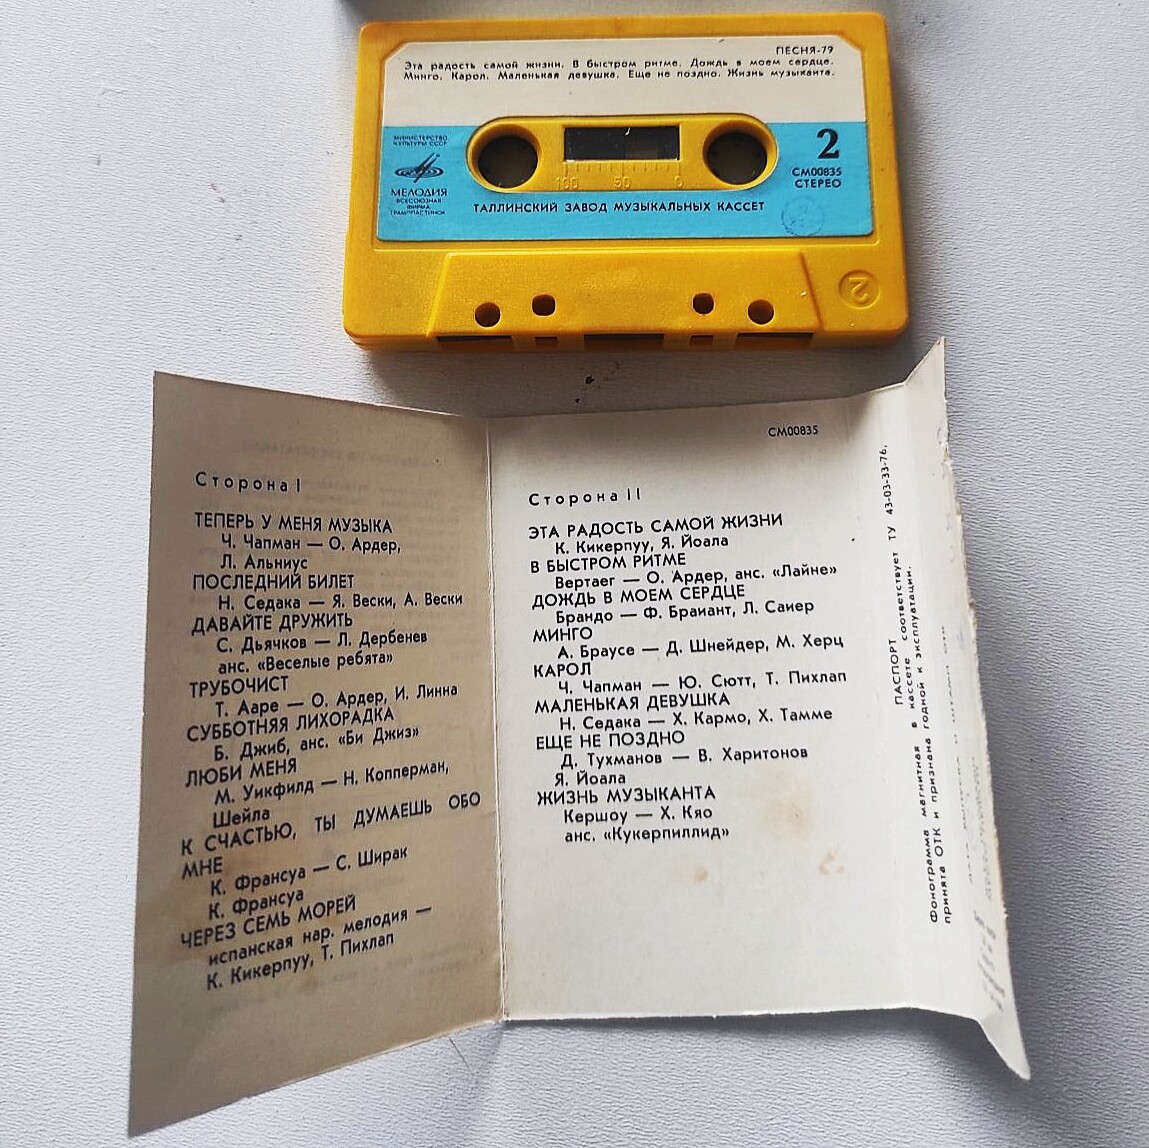 ПЕСНЯ-79
Эта радость самой жизни. В быстром ритме. Дождь в моем сердце.
Минго. Карол. Маленькая девушка. Еще не поздно. Жизнь музыканта.
МИНИСТЕРСТВО
КУЛЬТУРЫ СССР
МЕЛОДИЯ
ВСЕСОЮЗНАЯ
ФИРМА
ГРАМПЛАСТИНОК
2
СМ00835
СТЕРЕО
100 50 0
ТАЛЛИНСКИЙ ЗАВОД МУЗЫКАЛЬНЫХ КАССЕТ
2
Сторона I
ТЕПЕРЬ У МЕНЯ МУЗЫКА
Ч. Чапман — О. Ардер,
Л. Альниус
ПОСЛЕДНИЙ БИЛЕТ
Н. Седака — Я. Вески, А. Вески
ДАВАЙТЕ ДРУЖИТЬ
С. Дьячков — Л. Дербенев
анс. «Веселые ребята»
ТРУБОЧИСТ
Т. Ааре — О. Ардер, И. Линна
СУББОТНЯЯ ЛИХОРАДКА
Б. Джиб, анс. «Би Джиз»
ЛЮБИ МЕНЯ
М. Уикфилд — Н. Копперман,
Шейла
К СЧАСТЬЮ, ТЫ ДУМАЕШЬ ОБО
МНЕ
К. Франсуа — С. Ширак
К. Франсуа
ЧЕРЕЗ СЕМЬ МОРЕЙ
испанская нар. мелодия —
К. Кикерпуу, Т. Пихлап
СМ00835
Сторона II
ЭТА РАДОСТЬ САМОЙ ЖИЗНИ
К. Кикерпуу, Я. Йоала
В БЫСТРОМ РИТМЕ
Вертаег — О. Ардер, анс. «Лайне»
ДОЖДЬ В МОЕМ СЕРДЦЕ
Брандо — Ф. Браиант, Л. Саиер
МИНГО
А. Браусе — Д. Шнейдер, М. Херц
КАРОЛ
Ч. Чапман — Ю. Сютт, Т. Пихлап
МАЛЕНЬКАЯ ДЕВУШКА
Н. Седака — Х. Кармо, Х. Тамме
ЕЩЕ НЕ ПОЗДНО
Д. Тухманов — В. Харитонов
Я. Йоала
ЖИЗНЬ МУЗЫКАНТА
Кершоу — Х. Кяо
анс. «Кукерпиллид»
ПАСПОРТ
Фонограмма магнитная в кассете соответствует ТУ 43-03-33-76,
принята ОТК и признана годной к эксплуатации.